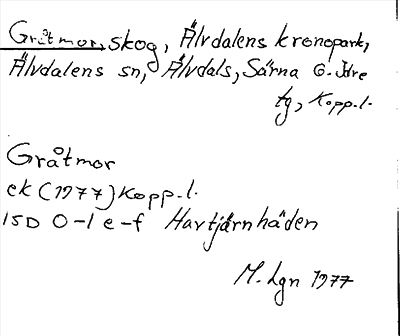 Gråtmor, skog, Älvdalens kronopark,
Älvdalens sn, Älvdals, Särna o. Idre
tg, Kopp.l.
Gråtmor
ek (1977) Kopp.l.
ISD 0-1 e-f Havtjärnhäden
M. Lgn 1977